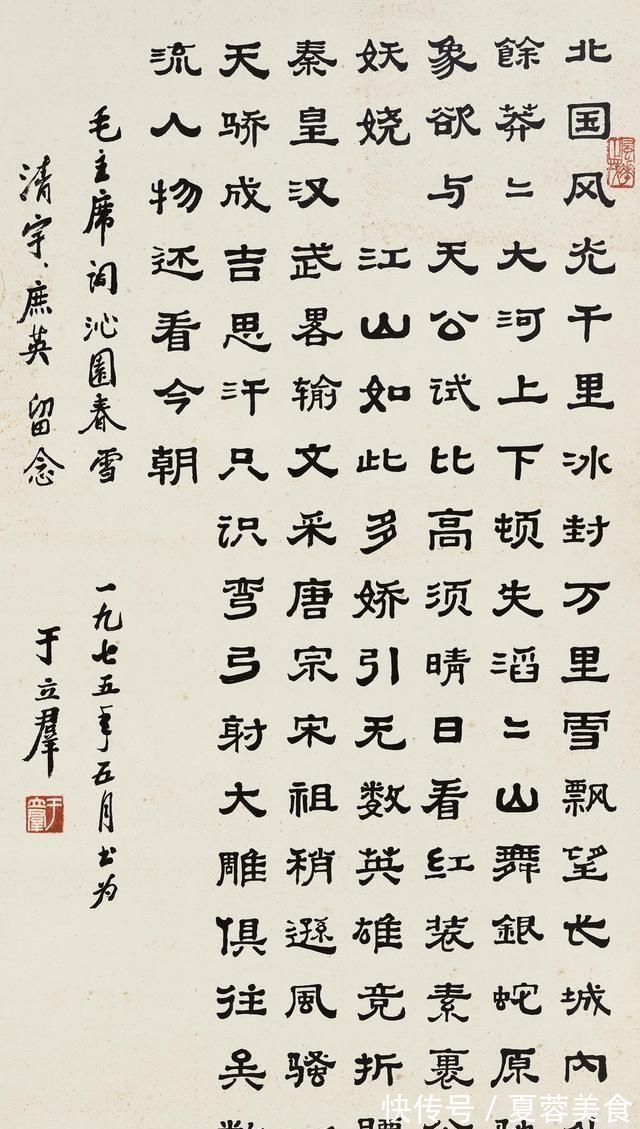 北国风光千里冰封万里雪飘望长城内
餘莽〻大河上下顿失滔〻山舞銀蛇原
象欲与天公试比高须晴日看红装素裹
妖娆江山如此多娇引无数英雄竞折
秦皇汉武畧输文采唐宗宋祖稍遜風骚
天骄成吉思汗只识弯弓射大雕俱往矣数
流人物还看今朝
毛主席词沁園春雪 一九七五年五月书为
清宇、庶英留念 于立羣
于立羣
快传号 / 夏蓉美食